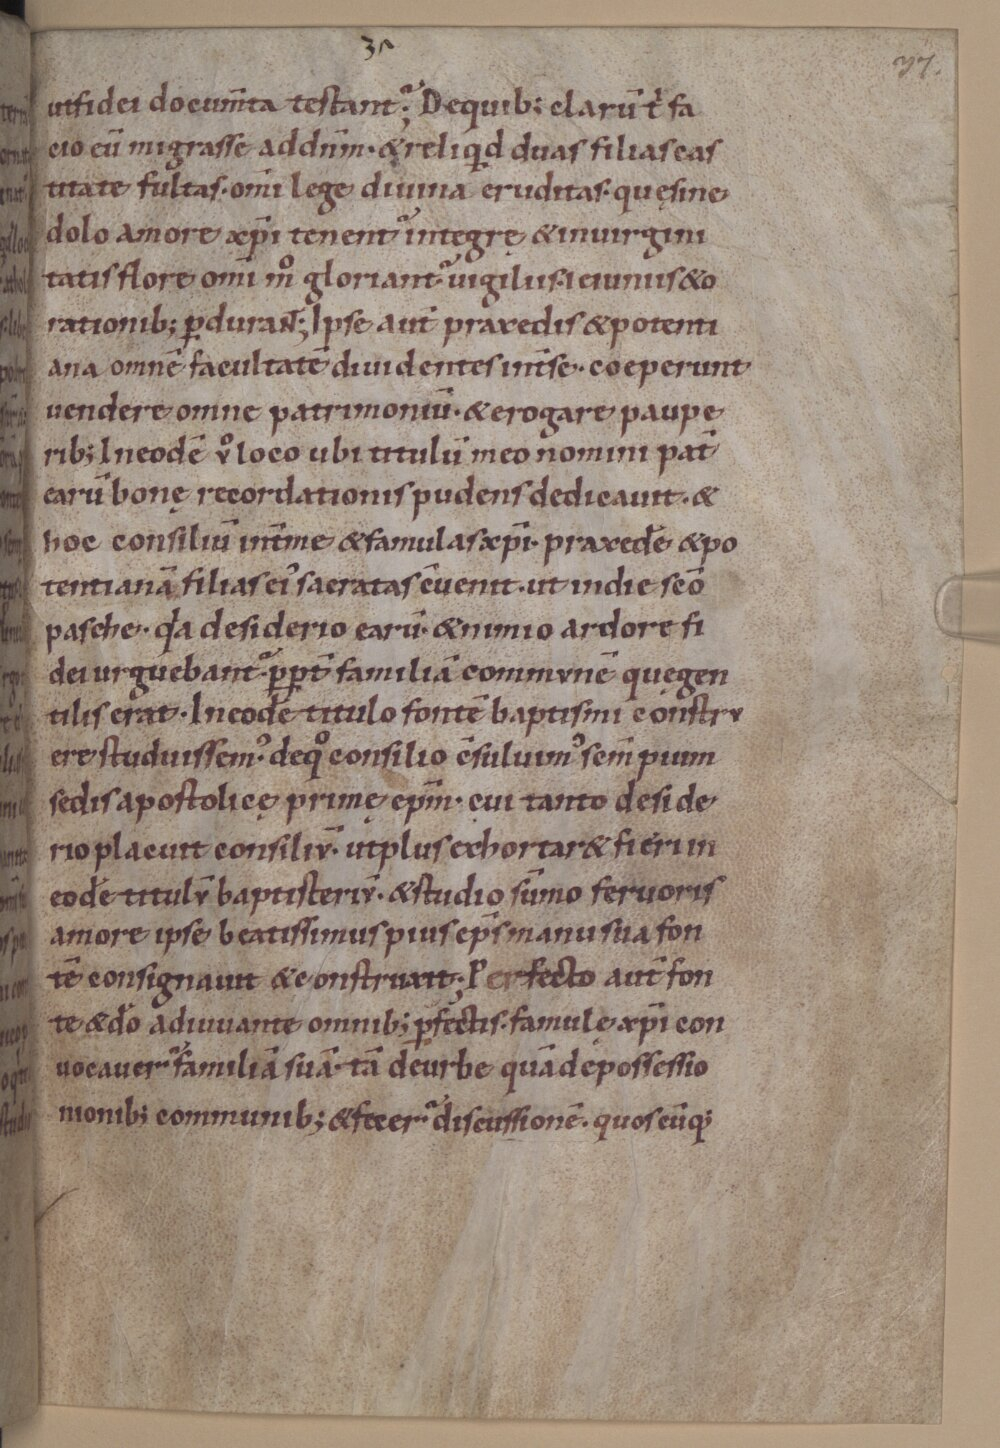 37.
ut fidei docum̄ta testant᷑. De quib; clarū t̄ fa
cio eū migrasse ad dn̄m. & reliqid duas filias cas
titate fultas. om̄i lege divina eruditas. quę sine
dolo amore xp̄i tenent᷑ integrę & in uirgini
tatis flore om̄i mͦ gloriant᷑ uigiliis. ieiuniis & o
rationib; p̱durant᷑; Ipse aut̄ praxedis & potenti
ana omnē facultatē diuidentes int̄ se. coeperunt
uendere omne patrimoniū. & erogare paupe
rib; In eodē vͦ loco ubi titulū meo nomini pat̄
earū bonę recordationis pudens dedicauit. &
hoc consiliū int̄ me & famulas xp̄i. praxedē & po
tentianā filias ei᷒ sacratas ēuenit. ut in die sc̄o
pasche. q̄a desiderio earū. & nimio ardore fi
dei urguebant᷑. p̱p̱t̄ familiā commvnē quę gen
tilis erat. In eodē titulo fontē baptismi constrv
ere studuissem᷒. de qͦ consilio c̄suluim᷒ sem̄ pium
sedis apostolicę primę ep̄m. cui tanto deside
rio placuit consiliv̄. ut plus exhortar& fieri in
eodē titulv̄ baptisteriv̄. & studio sūmo feruoris
amore ipse beatissimus pius ep̄s manu sua fon
tē consignauit & construxit; Perfecto aut̄ fon
te & dō adiuuante omnib; p̱fectis. famulę xp̄i con
uocauer᷑ familiā suā. tā de urbe quā de possessio
nionib; communib; & fecer᷑ discussionē. quoscūq;